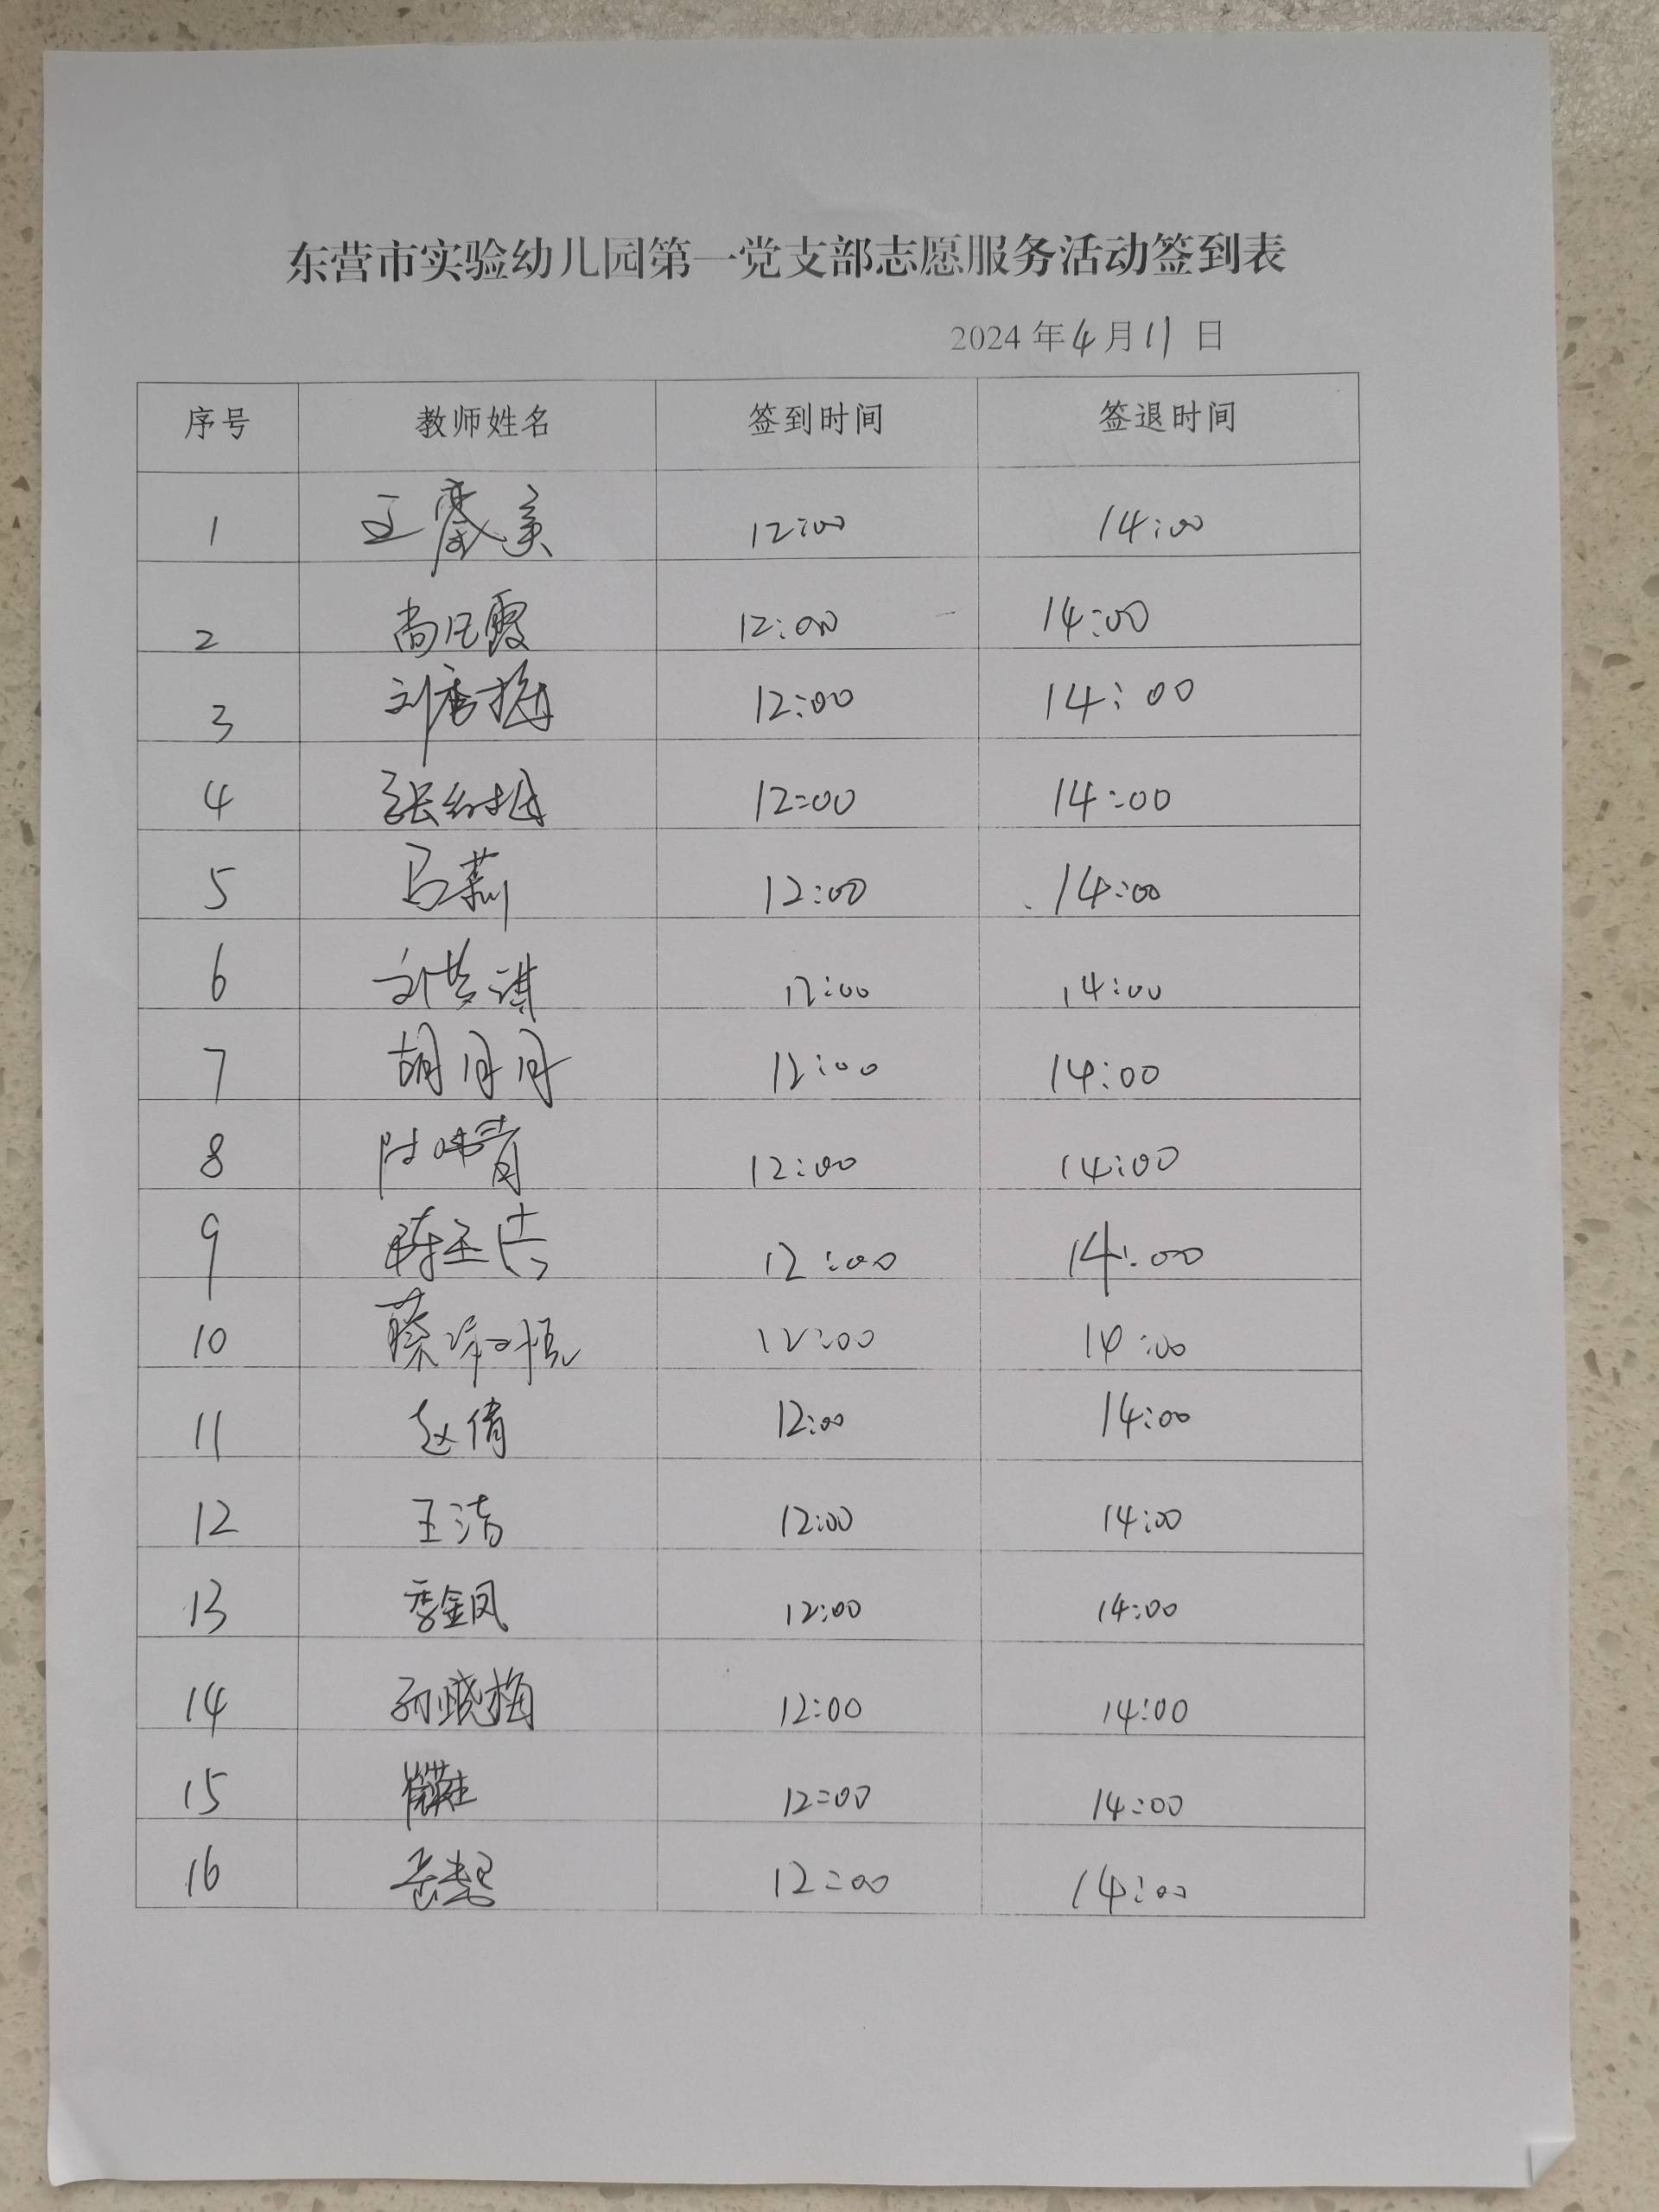 东营市实验幼儿园第一党支部志愿服务活动签到表
2024年4月11日
序号 教师姓名 签到时间 签退时间
1 王 12:00 14:00
2 尚凡霞 12:00 14:00
3 刘香梅 12:00 14:00
4 张红梅 12:00 14:00
5 马莉 12:00 14:00
6 刘芸淇 12:00 14:00
7 胡丹丹 12:00 14:00
8 陈晴 12:00 14:00
9 陈玉洁 12:00 14:00
10 蔡 12:00 14:00
11 赵倩 12:00 14:00
12 王洁 12:00 14:00
13 季金凤 12:00 14:00
14 孙晓梅 12:00 14:00
15 12:00 14:00
16 12:00 14:00